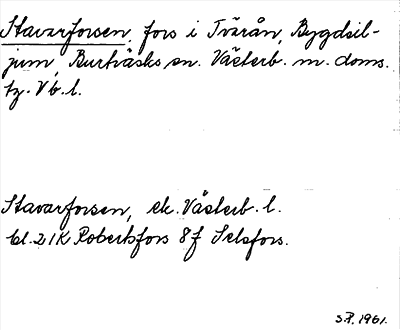 Stavarforsen, fors i Tvärån, Bygdsil-
jum, Burträsks sn. Västerb. m. doms.
tg. Vb. l.
Stavarforsen, ek. Västerb. l.
bl. 21K Robertsfors 8f Selsfors.
S.P. 1961.